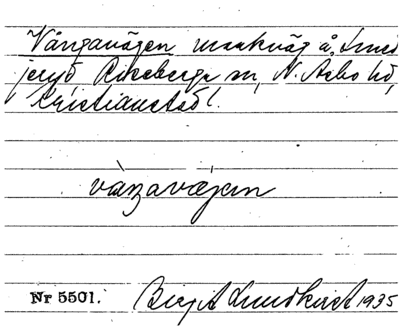 Vångavägen markväg å Smed
jeryd Riseberga sn, N. Åsbo hd,
Kristianst. l.
vàŋavæ̀jen
Nr 5501. Birgit Lundkvist 1935